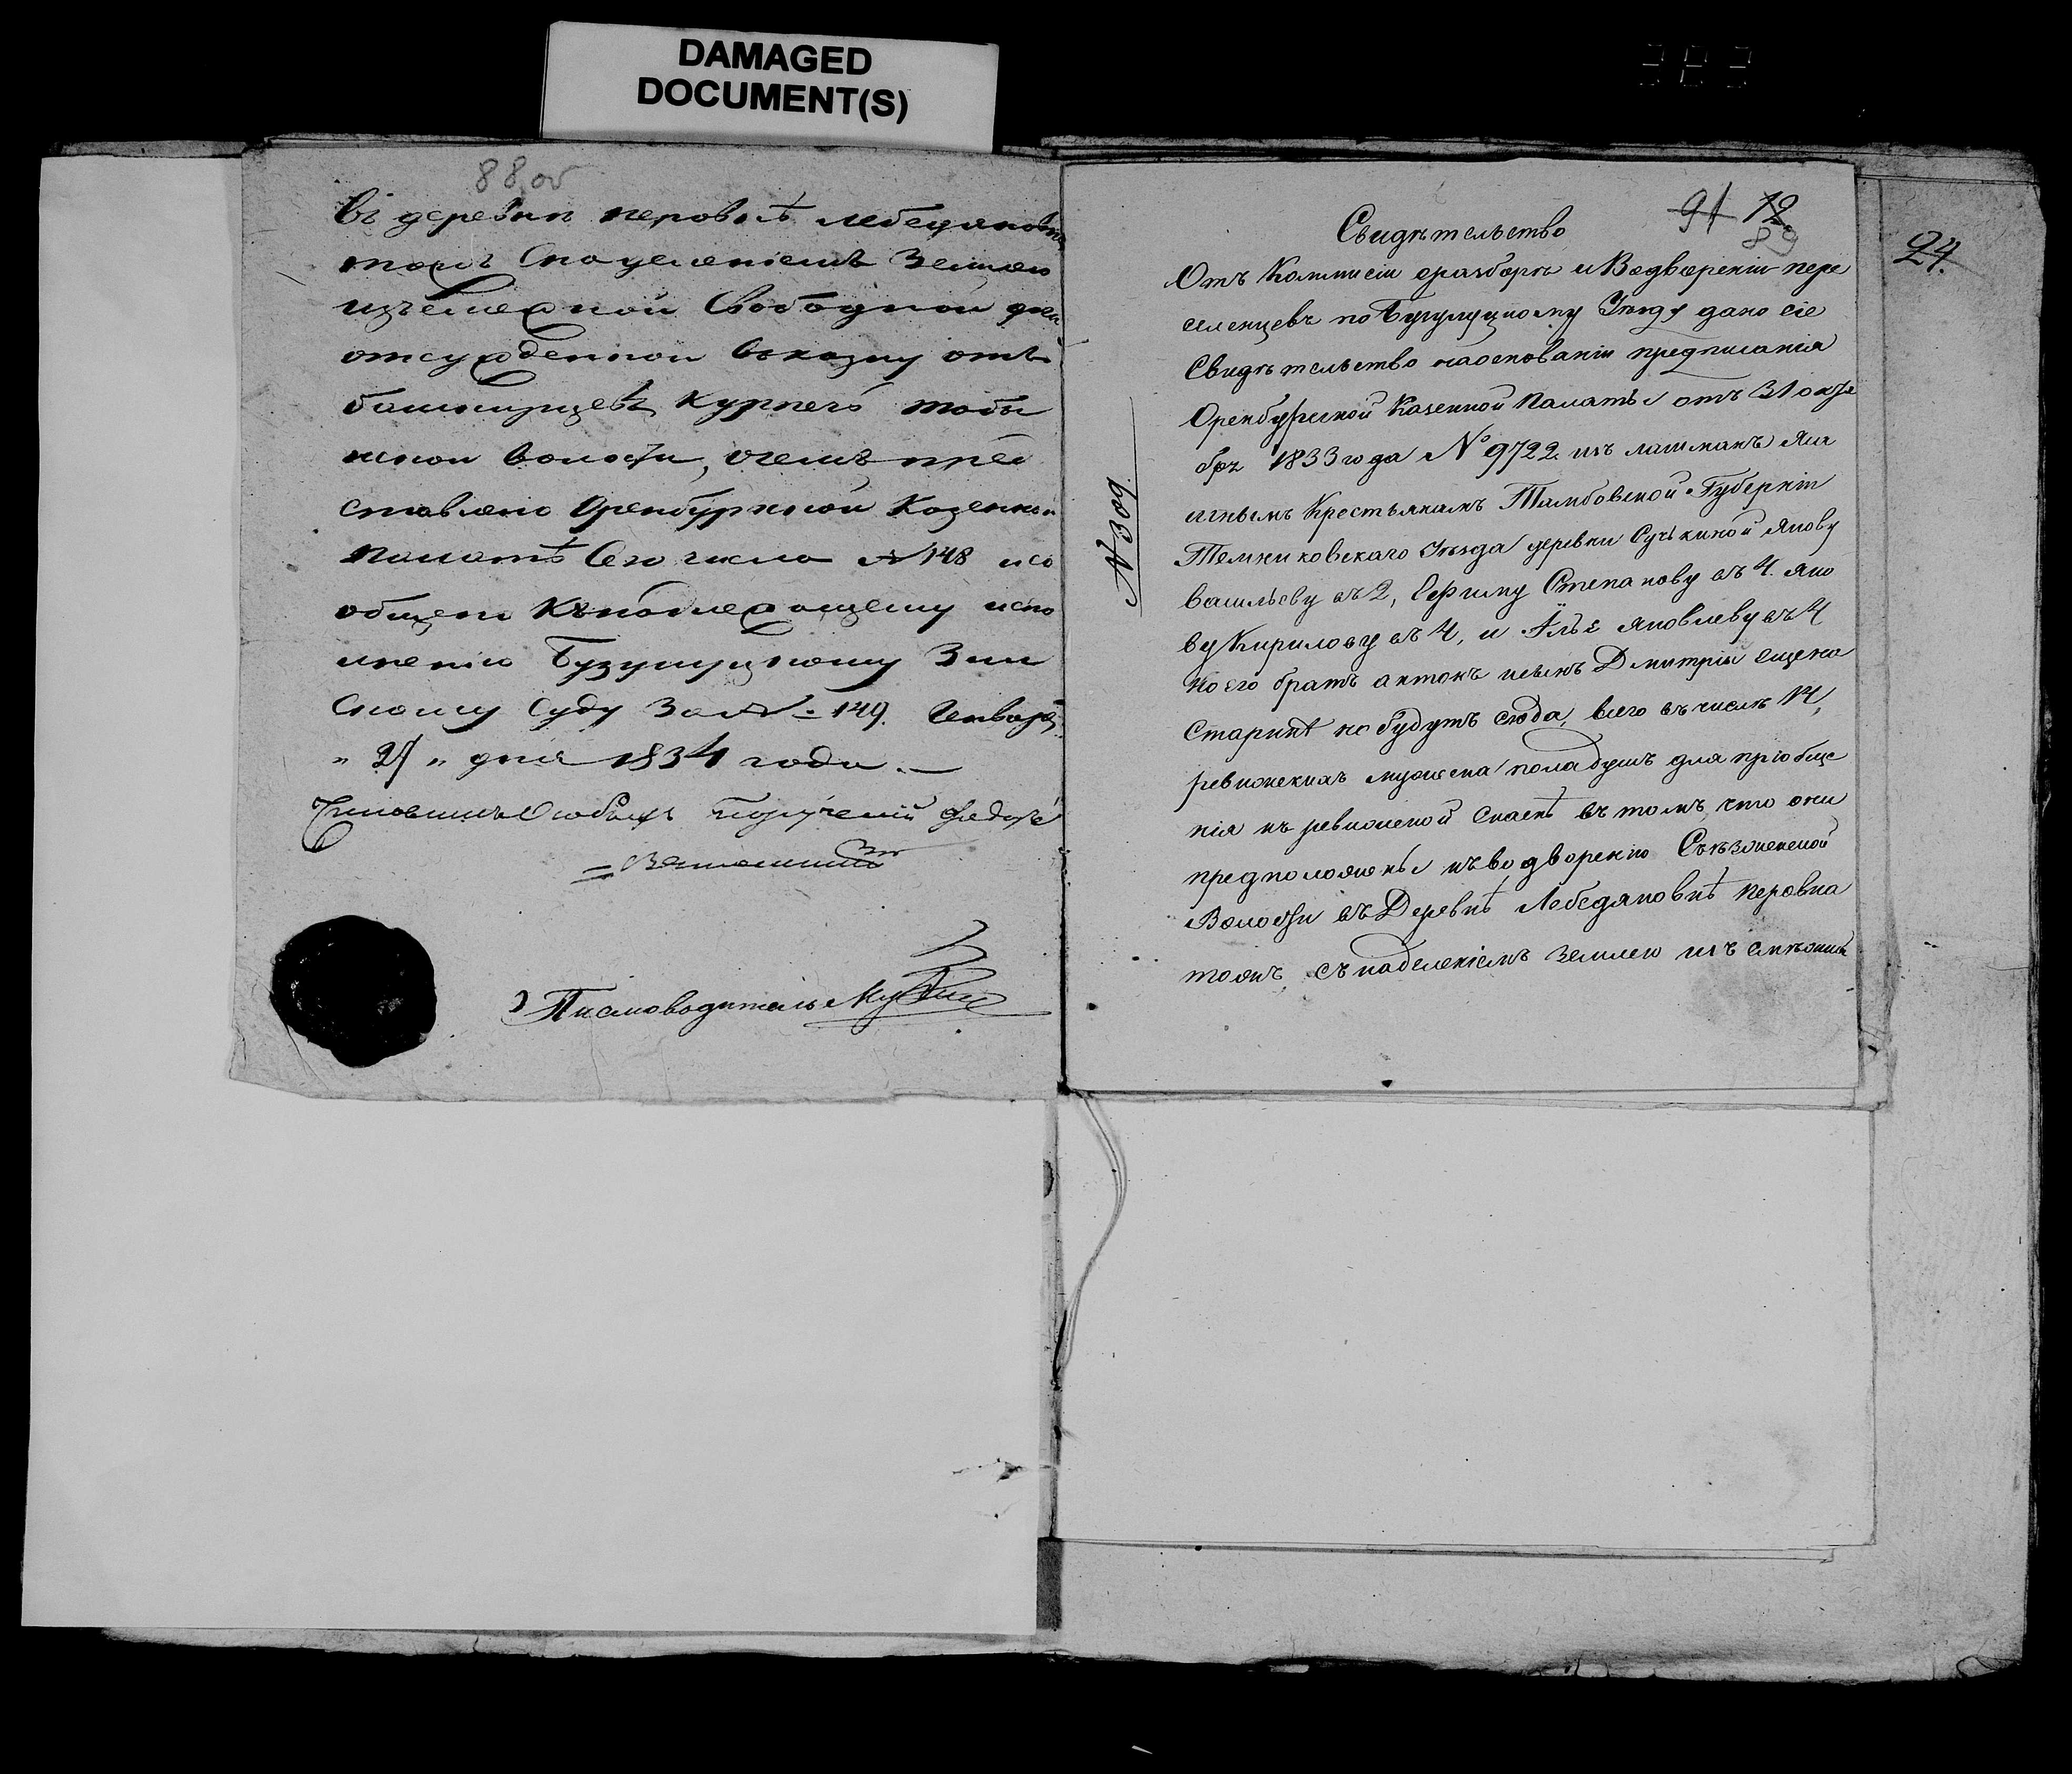 DAMAGED
DOCUMENT(S)
88 об
въ деревни перовъ лебедяновъ
тожъ снаделениемъ Землею
изъсмежной Свободной дачи
отсужденной въказну отъ
башкирцевъ Курпечъ табы
нской волости, очемъ пред
ставлено Оренбургской Казенной
Палатѣ Сего числа №148 и со
общено Кънадлежащему испо
лнению Бузулуцкому Зем
скому Суду За № 149. Генваря
" 27 " дня 1834 года.
Чиновникъ Особыхъ Порученій
Писмоводитель
91 12
89
24.
№ 309.
Свидѣтельство
Отъ Коммисіи оразборѣ и Водвореніи пере
селенцевъ по Бугулуцкому Уѣзду дано сіе
Свидѣтельство наоснованіи предписанія
Оренбургской Казенной Палаты отъ 31 октя
бря 1833 года № 9722 изъ лашманъ Яса
ишнымъ Крестьянамъ Тамбовской Губерніи
Темниковскаго Уѣзда деревни Сучкиной Якову
Васильеву въ 2, Ефиму Степанову въ 4. Яко
ву Кирилову въ 4, и Ильѣ Яковлеву въ 4
но его братъ антонъ исынъ Дмитрій
Старикѣ небудутъ сюда, всего въ числѣ 14,
ревижскихъ мужеска пола душъ для пріобще
нія къ ревижской Сказкѣ въ томъ, что они
предположены къ водворенію Съѣзженской
Волости въ Деревнѣ Лебедяновкѣ Перовка
тожъ, съ наделеніемъ землею изъ смѣжной